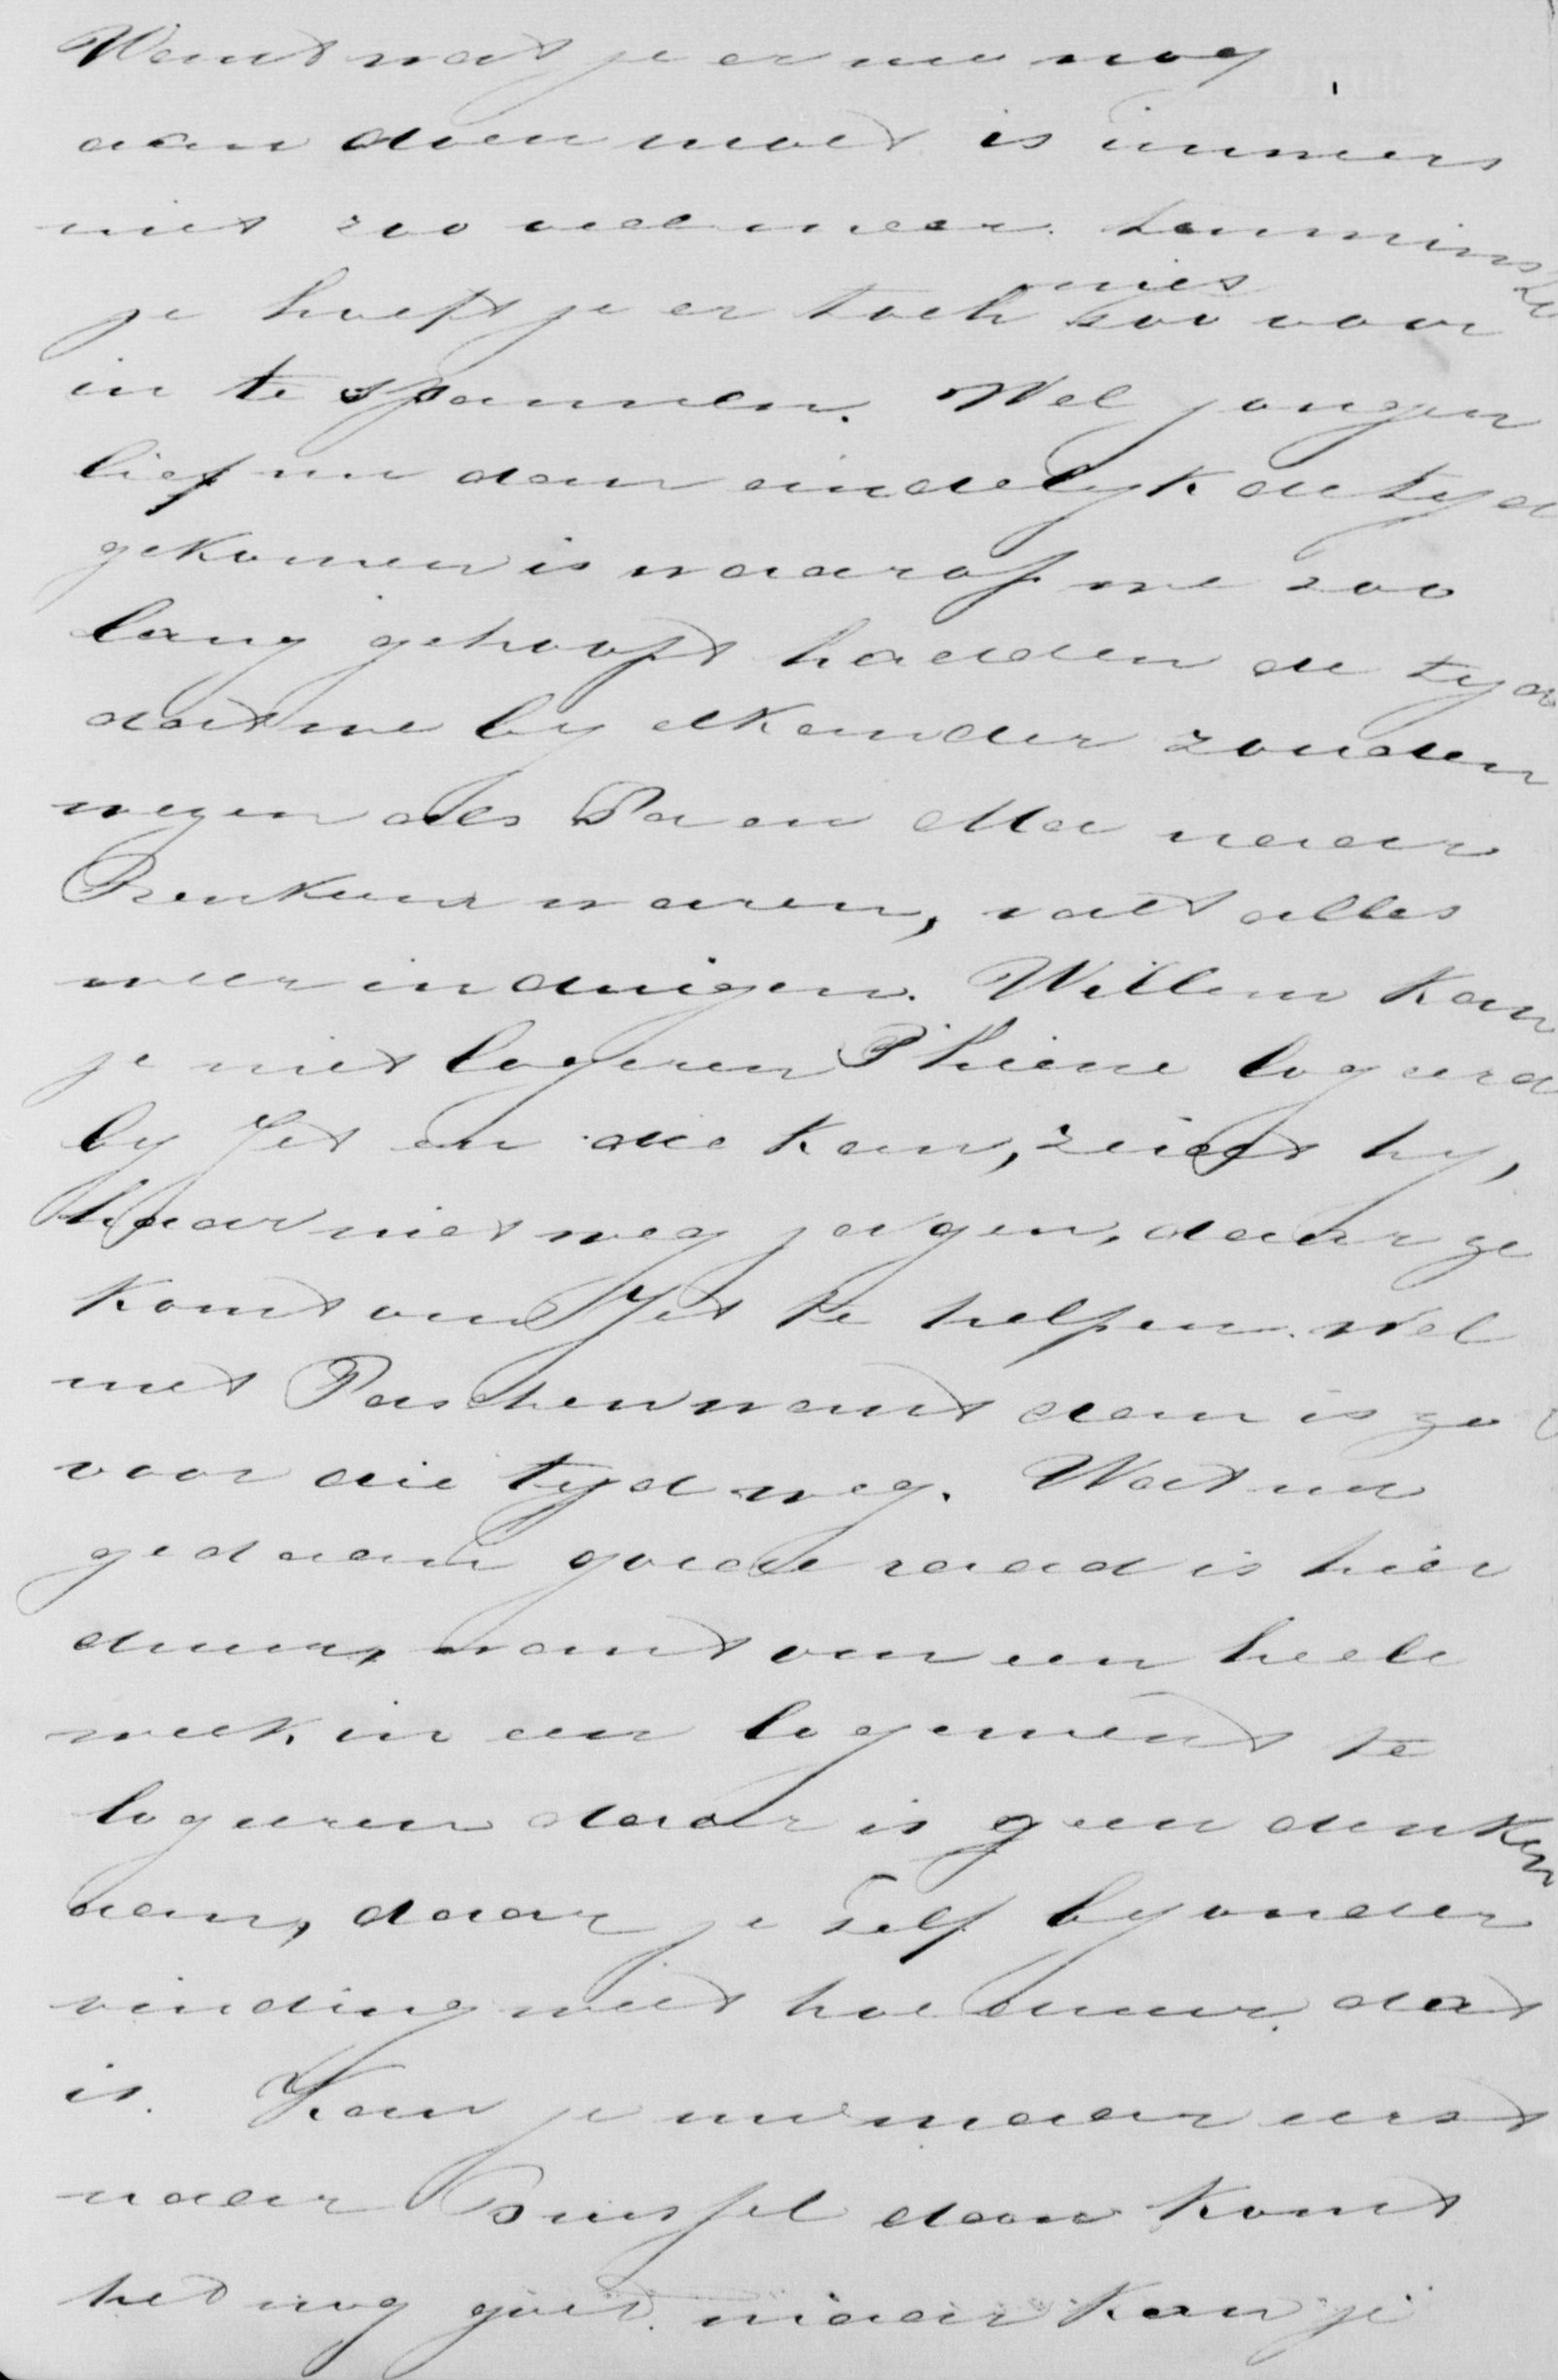 Want wat je er nu nog
aan doen moet is immers
niet zoo veel meer. tenminste
je hoeft je er toch niet zoo voor
in te spannen. Wel jongen
lief nu dan eindelyk de tyd
gekomen is waarop we zoo
lang gehoopt hadden de tyd
dat we by elkander zouden
wezen als Pa en Ma naar
Renkum waren, valt alles
weer in duigen. Willem kan
je niet logeren Phiene logeerd
by Jet en die kan, zeigt hy,
haar niet weg jagen, daar ze
komt om Jet te helpen. Wel
met Paschen want dan is ze
voor die tyd weg. Wat nu
gedaan goede raad is hier
duur, want om een heele
week in een logement te
logeeren daar is geen denken
aan, daar je self by onder
vinding weet hoe duur dat
is. Kan je nu maar eerst
naar Brussel dan komt
het nog goed. maar kan je